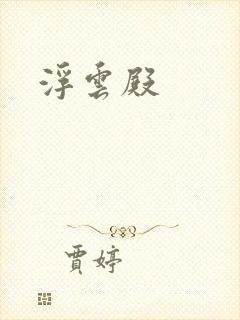 浮雲殿
賈婷